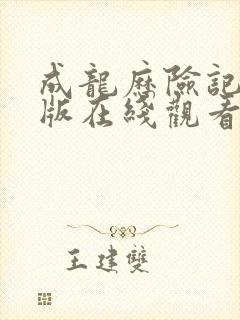 成龍歷險記
版在綫觀看
王建雙